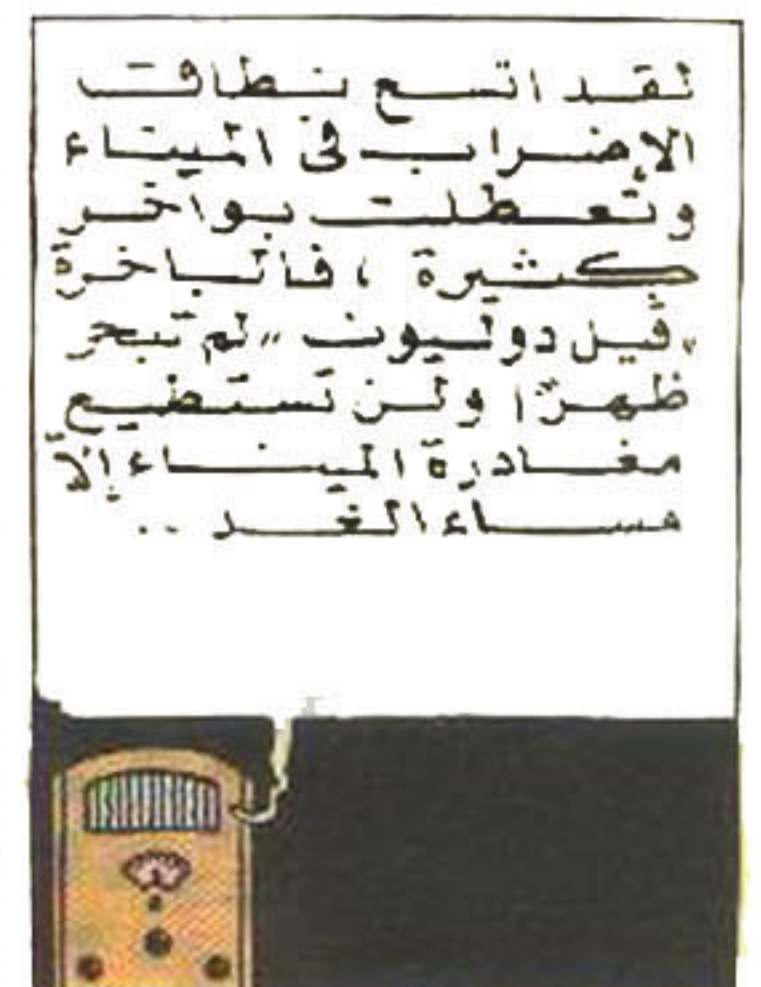 لقد اتسع نطاق
الإضراب فى الميناء
وتعطلت بواخر
كثيرة ، فالباخرة
"ڤيل دوليون" لم تبحر
ظهرًا ولن تستطيع
مغادرة الميناء إلاّ
مساء الغد ..